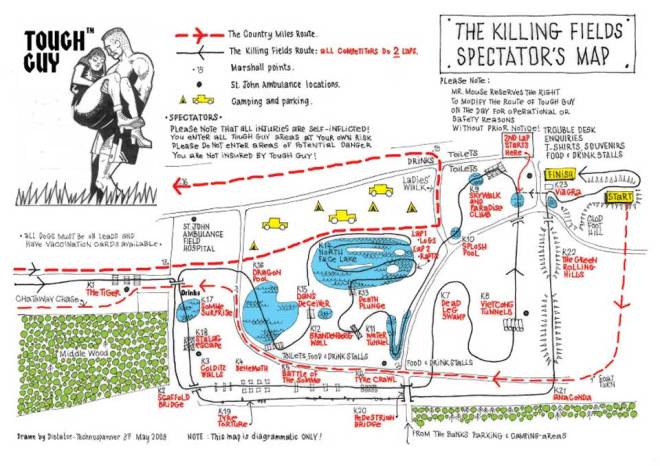 TOUGH™
GUY
The Country Miles Route.
The Killing Fields Route: all Competitors Do 2 Laps.
Marshall points.
St. John Ambulance locations.
Camping and parking.
THE KILLING FIELDS
SPECTATOR'S MAP
Please Note:
Mr. Mouse reserves the right
to modify the route of Tough Guy
on the day for operational or
safety reasons
without prior notice!
• SPECTATORS •
Please note that all injuries are self-inflicted!
You enter all Tough Guy areas at your own risk
Please do not enter areas of potential danger
You are not insured by Tough Guy!
2nd Lap
Starts
Here
Trouble Desk
Enquiries
T-Shirts, Souvenirs
Food & Drink Stalls
FINISH
START
K23
Viagra
Clod
Foot
Hill
K22
The Green
Rolling
Hills
Drinks
Toilets
Toilets
Ladies'
Walk
K9
Skywalk
and
Paradise
Climb
K10
Splash
Pool
• All dogs must be on leads and
have vaccination cards available •
St. John
Ambulance
Field
Hospital
Lap 1
- Logs
Lap 2
- Rafts
K14
North
Face Lake
K16
Dragon
Pool
K15
Dans
Deceiver
K13
Death
Plunge
K12
Brandenberg
Wall
K11
Water
Tunnel
K7
Dead
Leg
Swamp
K8
Vietcong
Tunnels
K1
The Tiger
Chataway Chase
Drinks
K17
Zombie
Surprise
K18
Stalag
Escape
K3
Colditz
Walls
K4
Behemoth
Toilets, Food & Drink Stalls
Food & Drink Stalls
K5
Battle of
the Somme
K6
Tyre Crawl
Middle Wood
K2
Scaffold
Bridge
K19
Tyre
Torture
K20
Pedestrian
Bridge
K21
Anaconda
From the Banks Parking & Camping-Areas
NOTE: This map is diagrammatic ONLY!